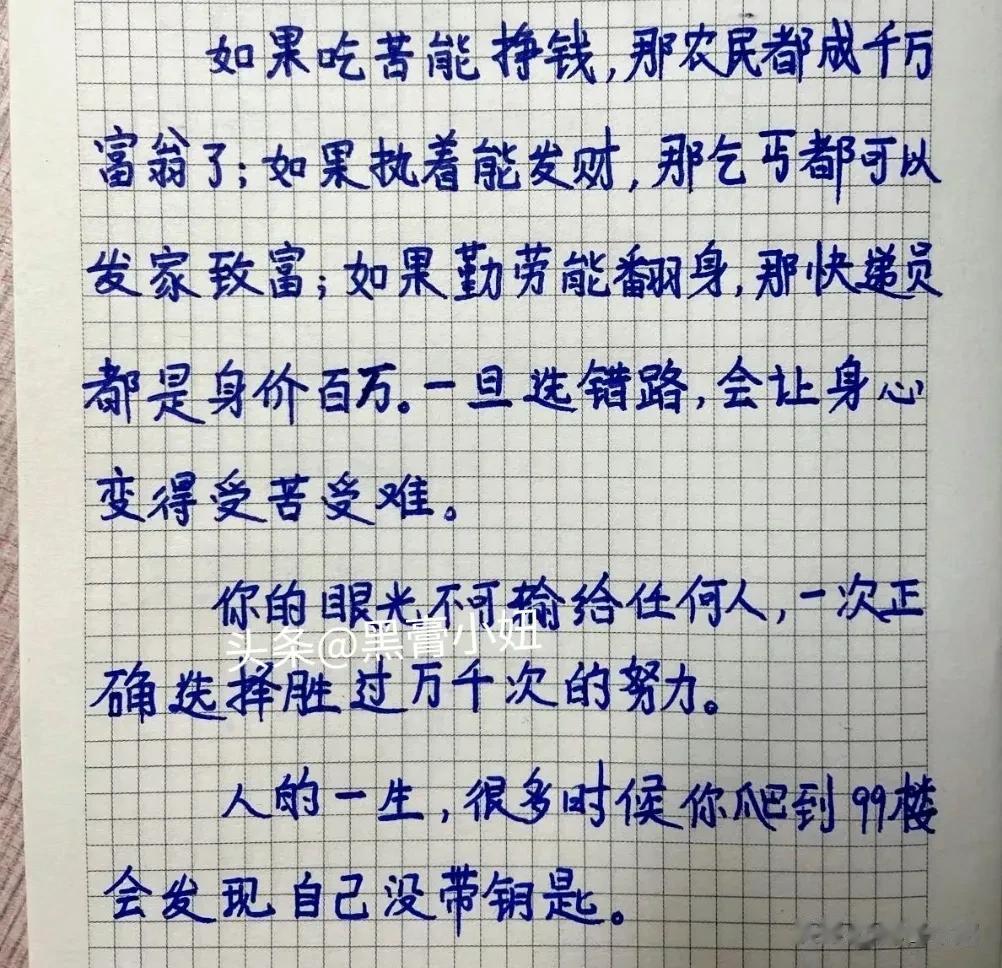 如果吃苦能挣钱,那农民都成千万
富翁了;如果执着能发财,那乞丐都可以
发家致富;如果勤劳能翻身,那快递员
都是身价百万。一旦选错路,会让身心
变得受苦受难。
你的眼光不可输给任何人,一次正
头条@黑膏小妞
确选择胜过万千次的努力。
人的一生,很多时候你爬到99楼
会发现自己没带钥匙。